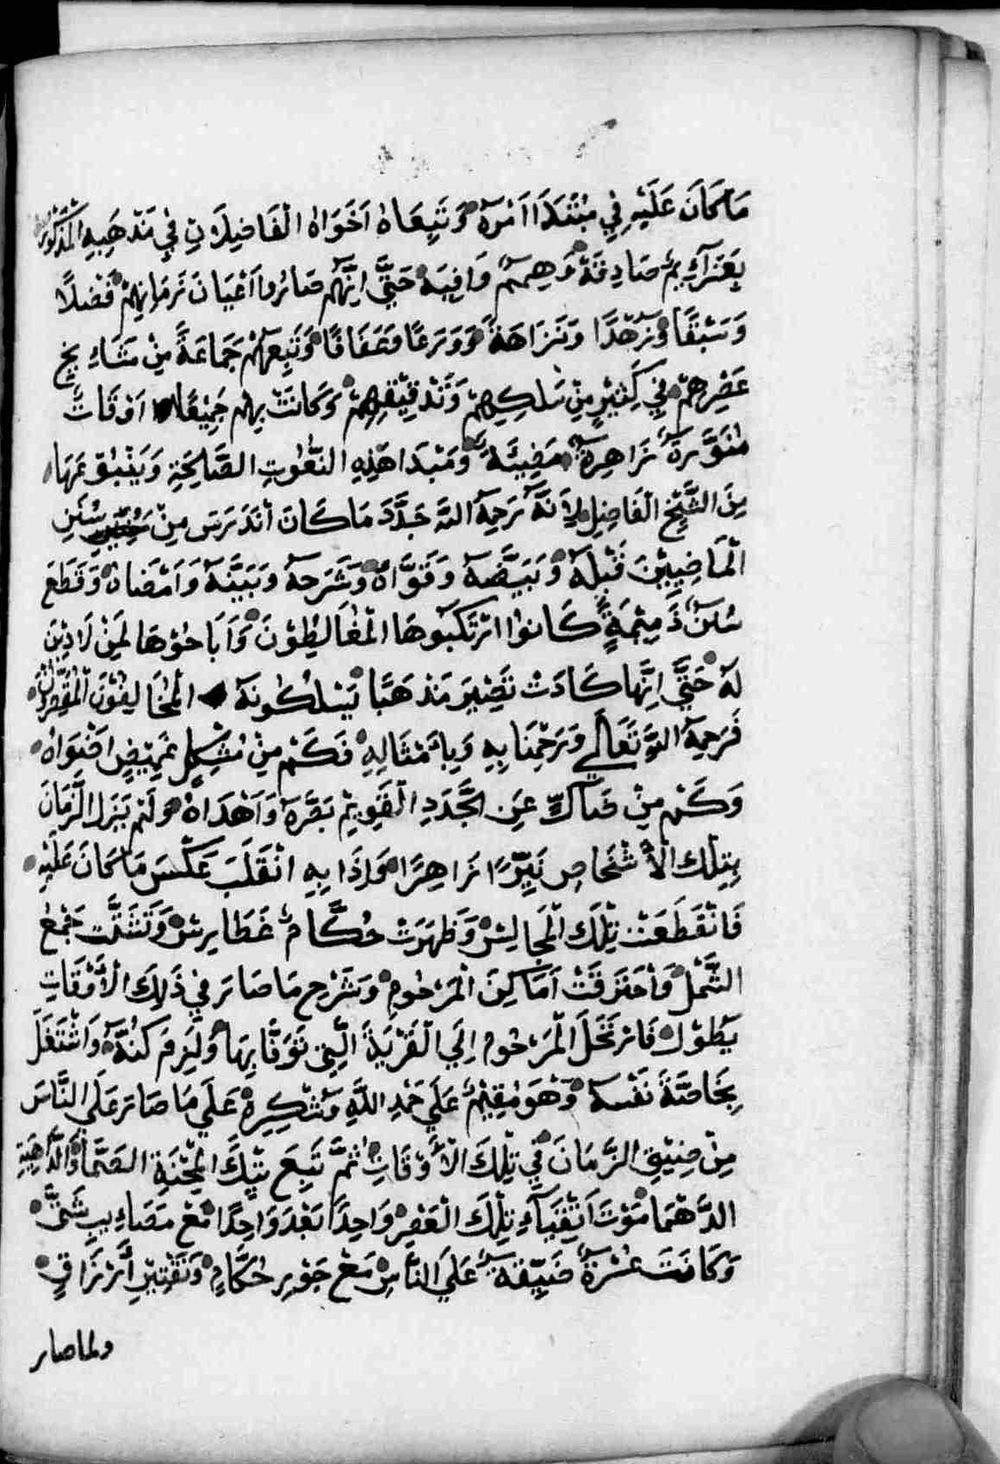 مَا كَانَ عَلَيْهِ فِي مُبْتَدَا اَمْرِهِ وَتَبِعَاهُ اَخَوَاهُ الْفَاضِلَانِ فِي مَذْهَبِهِ الْمَذْكُوْرِ
بِعَزَآئِمٍ صَادِقَةٍ وَهِمَمٍ وَافِيَةٍ حَتَّى اِنَّهُم صَارُوا اَعْيَانَ زَمَانِهِمْ فَضْلًا
وَسَبْقًا وَزُهْدًا وَنَزَاهَةً وَوَرَعًا وَعَفَافًا وَتَبِعَهُمْ جَمَاعَةً مِنْ مَشَايِخِ
عَصْرِهِمْ فِي كَثِيْرٍ مِنْ سَلْكِهِمْ وَتَدْقِيْقِهِمْ وَكَانَتْ بِهِم جَمِيْعًا اَوْقَاتٌ
مُنَوَّرَةٌ زَاهِرَةٌ مَضِيْئَةٌ وَمَبْدَا هَذِهِ النُّعُوتِ الصَّالِحَةِ وَيَنْبُوْعَهَا
مِنَ الشَّيْخِ الْفَاضِلِ لِاَنَّهُ رَحِمَهُ اللَّه جَدَّدَ مَا كَانَ اَنْدَرَسَ مِنْ سُنَنِ
الْمَاضِيِيْنَ قَبْلَهُ وَبَيَّضَهُ وَقَوَّاهُ وَشَرَحَهُ وَبَيَّنَهُ وَاَمْضَاهُ وَقَطَعَ
سُنَنً ذَمِيْمَةٍ كَانُوا ارْتَكَبُوهَا الْمُغَالِطُوْنَ وَاَبَاحُوْهَا لِمَنْ لَا دِيْنَ
لَهُ حَتَّى اِنَّهَا كَادَتْ تَصِيْرَ مَذْهَبًا يَسْلُكُونَهُ الْمُخَالِفُوْنَ
فَرَحِمَهُ اللَّه تَعَالَى وَرَحِمَنَا بِهِ وَبِاَمْثَالِهِ فَكَمْ مِنْ مُشْكِلٍ غَمِيْضٍ
وَكَمْ مِنْ عَنِ الْجَدَدِ الْقَوِيْمِ وَاَهْدَاهُ وَلَمْ يَزَلِ الزَّمَانَ
بِتِلْكَ الْاَشْخَاصِ نَيِّرًا زَاهِرًا وَاِذَا بِهِ انْقَلَبَ عَكْسَ مَا كَانَ عَلَيْهِ
فَانْقَطَعَتْ تِلْكَ الْمَجَالِسْ وَظَهَرَتْ حُكَّامٌ غَطَارِسْ وَتَشَتَّت جَمْعُ
الشَّمْلُ وَاحْتَرَقَتْ اَمَاكِنَ الْمَرْحُومِ وَشَرْحِ مَا صَارَ فِي ذَلِكَ الْاَوْقَاتِ
يَطُوْلُ فَارْتَحَلَ الْمَرْحُومُ اِلَي الْقَرْيَةِ الَّتِي تَوَفَّا بِهَا وَلَزِمَ كِنَّهُ وَاشْتَغَلَ
بِخَاصَّةِ نَفْسِهِ وَهْوَ مُقِيْمٌ عَلَى حَمْدِ اللَّهِ وَشُكْرِهِ عَلَى مَا صَارَ عَلَى النَّاسِ
مِنْ ضِيْقِ الزَّمَانِ فِي تِلْكَ الْاَوْقَاتِ ثُمَّ تَبِعَ تِلْكَ الْمِحْنَةِ الصَّمَّا وَالدَّاهِيَةِ
الدَّهْمَا مَوْتَ اَتْقِيَآءِ تِلْكَ الْعَصْرِ وَاحِدًا بَعْدَ وَاحِدًا مَعْ مَصَايِبٍ شَتَّى
وَكَانَتْ عُسْرَةٌ ضَيِّقَةٌ عَلَى النَّاسِ مَعْ جَوْرِ حُكَّامٍ وَتَقْتِيْرِ أَرْزَاقٍ
ولما صار